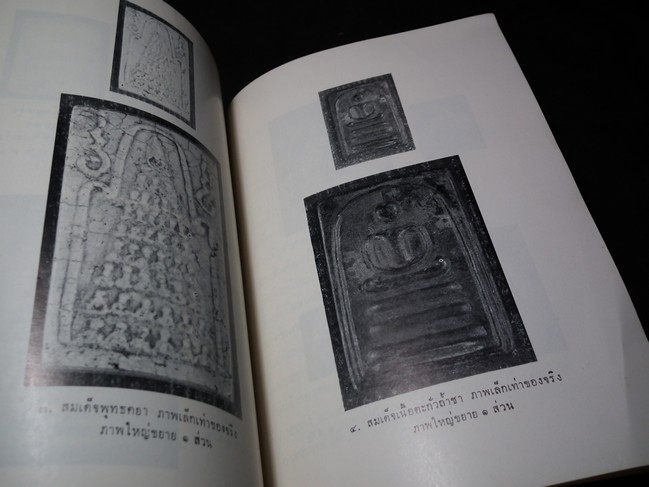 ๓. สมเด็จพุทธคยา ภาพเล็กเท่าของจริง
ภาพใหญ่ขยาย ๑ ส่วน
๔. สมเด็จเนื้อตะกั่วถ้ำชา ภาพเล็กเท่าของจริง
ภาพใหญ่ขยาย ๑ ส่วน